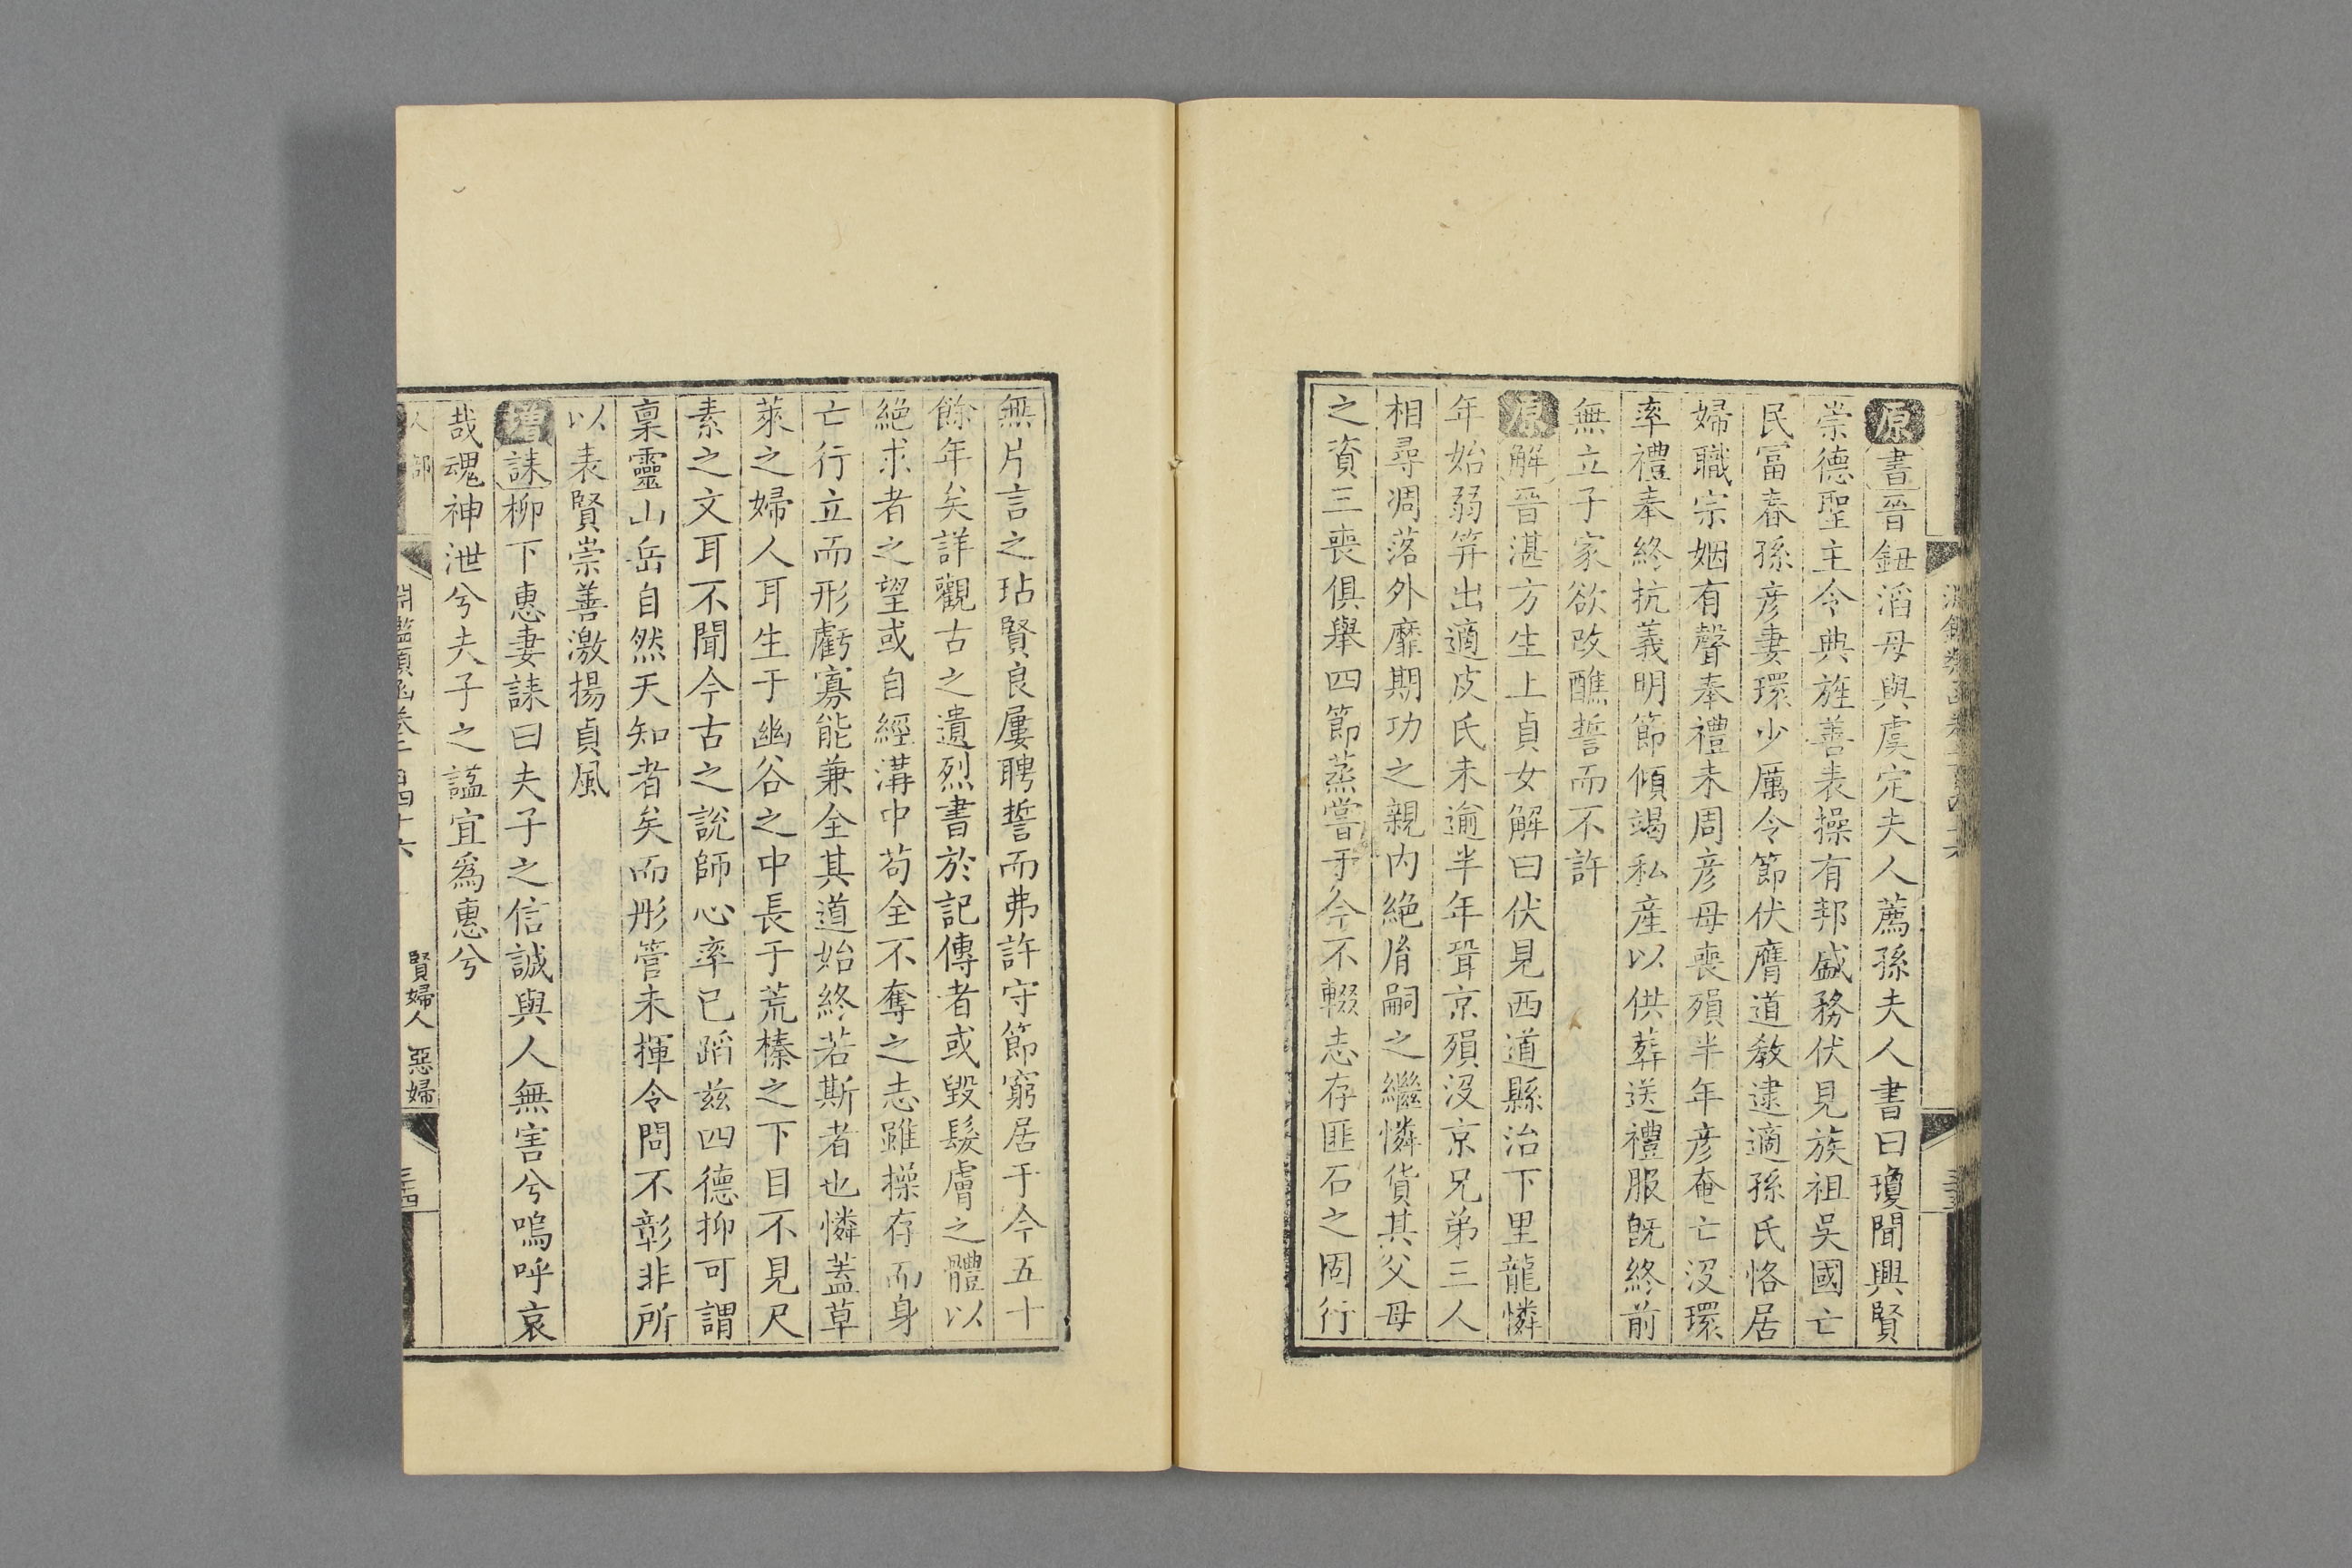 原書晉鈕滔母與虞定夫人薦孫夫人書曰瓊聞興賢
崇德聖主令典旌善表操有邦盛務伏見族祖吳國亡
民富春孫彥妻環少厲令節伏膺道教逮適孫氏恪居
婦職宗姻有聲奉禮未周彥母喪殞半年彥奄亡沒環
率禮奉終抗義明節傾竭私產以供葬送禮服旣終前
無立子家欲改醮誓而不許
原解晉湛方生上貞女解曰伏見西道縣治下里龍憐
年始弱笄出適皮氏未逾半年聟京殞沒京兄弟三人
相尋凋落外靡期功之親內絕胤嗣之繼憐貨其父母
之資三喪俱舉四節蒸嘗于今不輟志存匪石之固行
無片言之玷賢良屢聘誓而弗許守節窮居于今五十
餘年矣詳觀古之遺烈書於記傳者或毀髮膚之體以
絕求者之望或自經溝中苟全不奪之志雖操存而身
亡行立而形虧寡能兼全其道始終若斯者也憐蓋草
萊之婦人耳生于幽谷之中長于荒榛之下目不見尺
素之文耳不聞今古之說師心率已蹈茲四德抑可謂
稟靈山岳自然天知者矣而彤管未揮令問不彰非所
以表賢崇善激揚貞風
增誄柳下惠妻誄曰夫子之信誠與人無害兮嗚呼哀
哉魂神泄兮夫子之謚宜爲惠兮
人部 淵鑑類函卷二百四十六 賢婦人 惡婦 三四